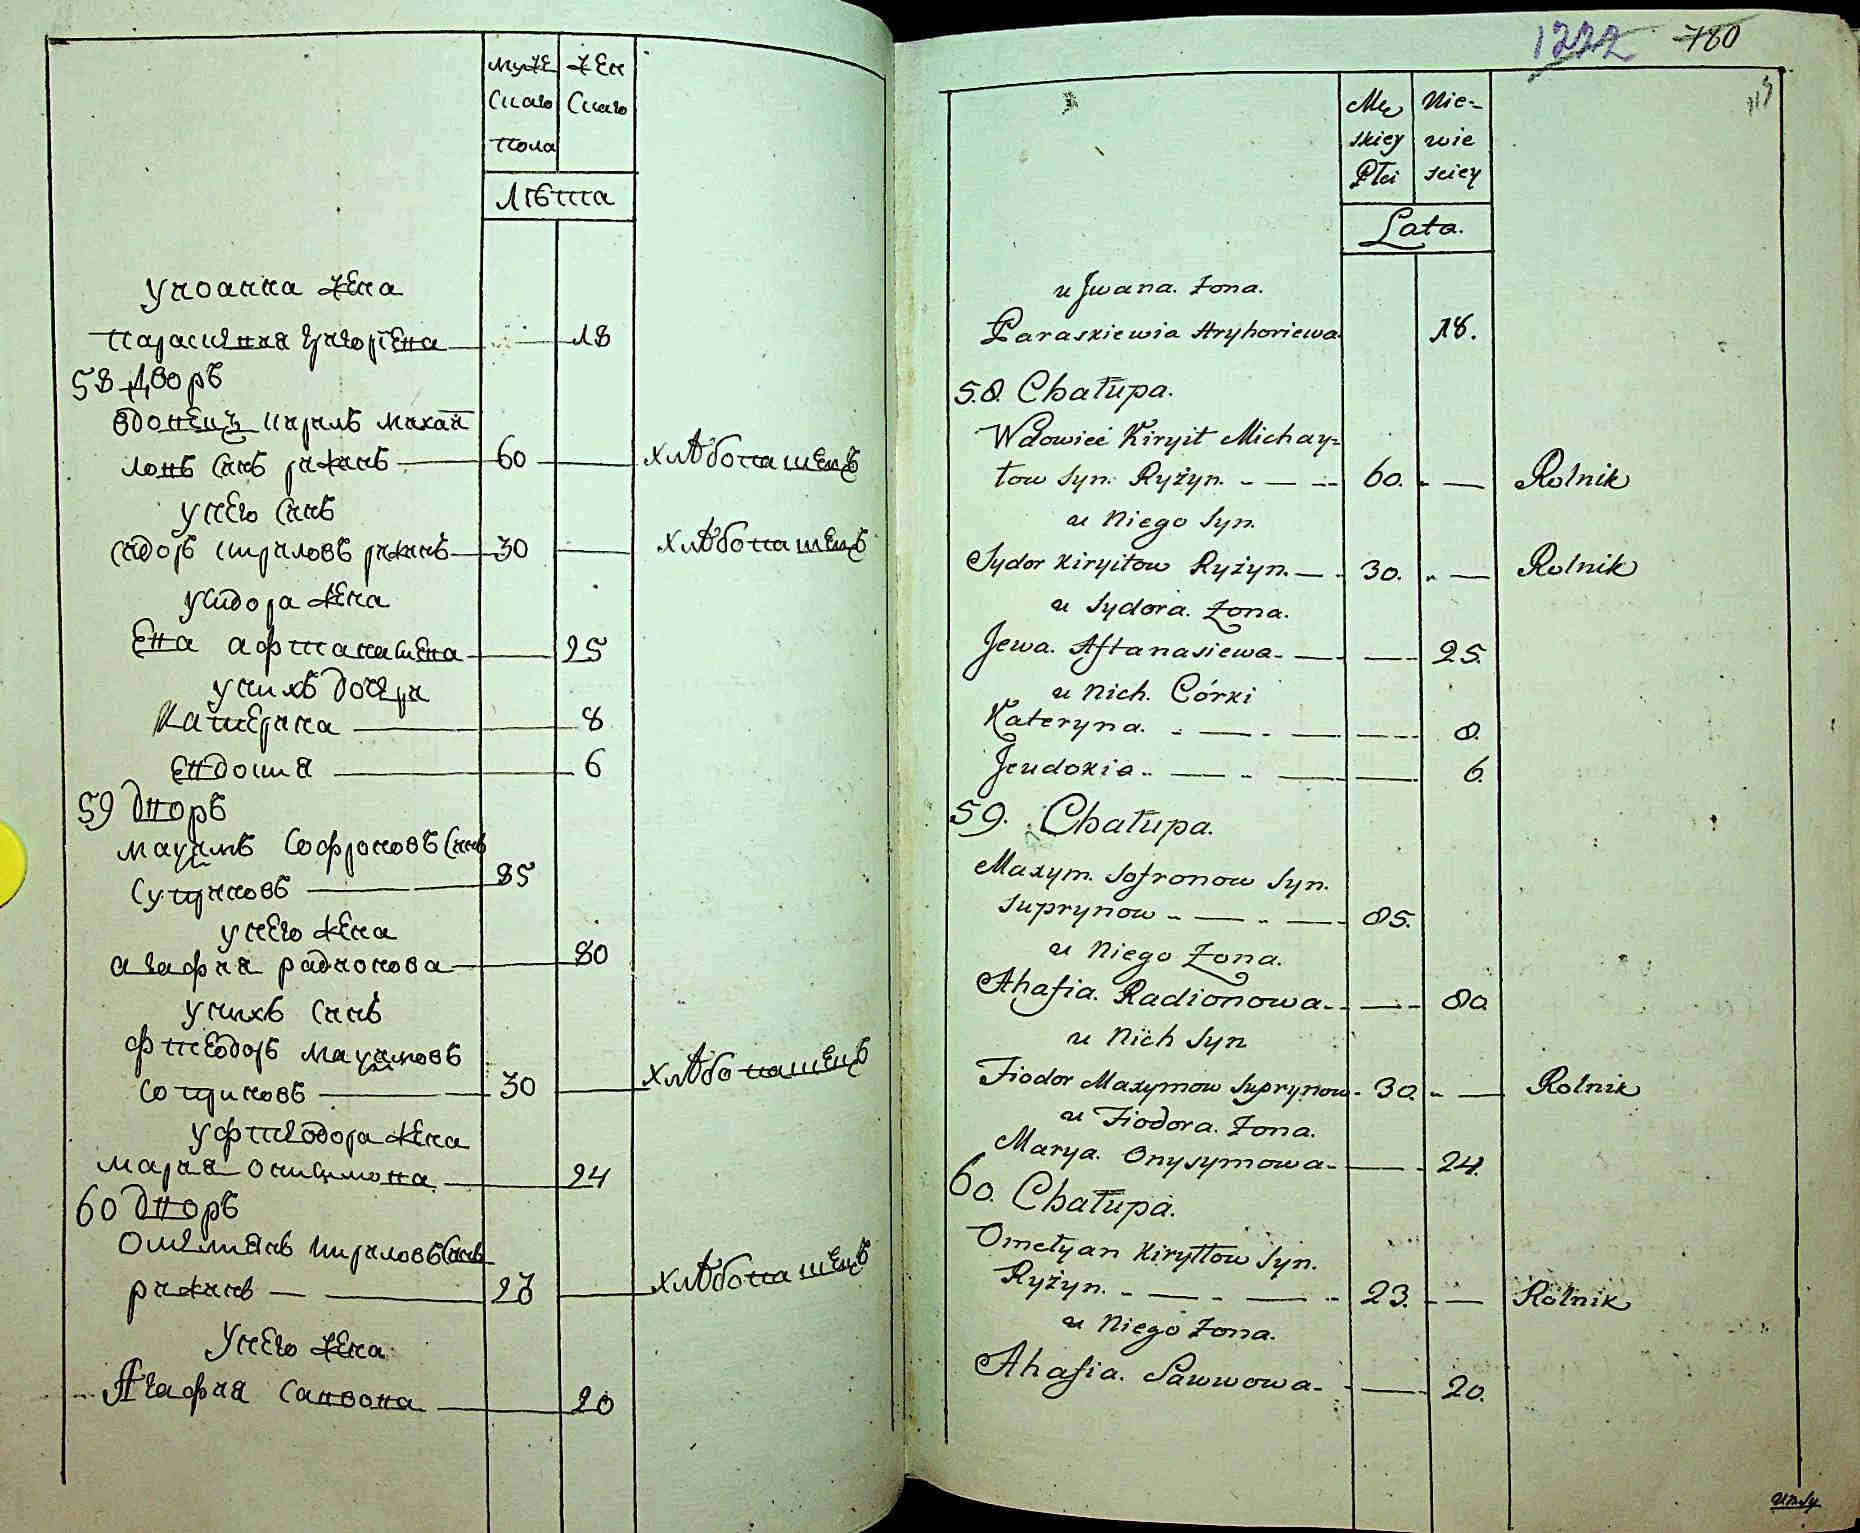 муже
скаго
пола
жен
скаго
лѣта
уивана жена
параскивия григориева 18
58 дворъ
вдовецъ кирилъ михай
ловъ синъ рижинъ 60 хлѣбопашецъ
унего синъ
сидоръ кириловъ рижинъ 30 хлѣбопашецъ
усидора жена
ева афтанасиева 25
унихъ дочери
катерина 8
евдокия 6
59 дворъ
максимъ софроновъ синъ
суприновъ 85
унего жена
агафия радионова 80
унихъ синъ
фтеодоръ максимовъ
соприновъ 30 хлѣбопашецъ
уфтеодора жена
мария онисимова 24
60 дворъ
омелиянъ кириловъ синъ
рижинъ 23 хлѣбопашецъ
унего жена
Агафия саввова 20
1222 780
Mę
skiey
Płci
Nie-
wie
sciey
Lata.
u Jwana. Żona.
Paraskiewia Hryhoriewa 18.
58. Chałupa.
Wdowieć Kiryił Michay=
łow syn. Ryżyn. 60. Rolnik
u Niego Syn.
Sydor Kiryiłow Ryżyn. 30. Rolnik
u Sydora. Żona.
Jewa. Aftanasiewa. 25.
u Nich. Córki
Kateryna. 8.
Jeudokia. 6.
59. Chałupa.
Maxym. Sofronow Syn.
Suprynow 85.
u Niego Żona.
Ahafia. Radionowa. 80.
u Nich Syn
Fiodor Maxymow Suprynow 30. Rolnik
u Fiodora. Żona.
Marya. Onysymowa. 24.
60. Chałupa.
Omełyan Kiryłłow Syn.
Ryżyn. 23. Rolnik
u Niego Żona.
Ahafia. Sawwowa. 20.